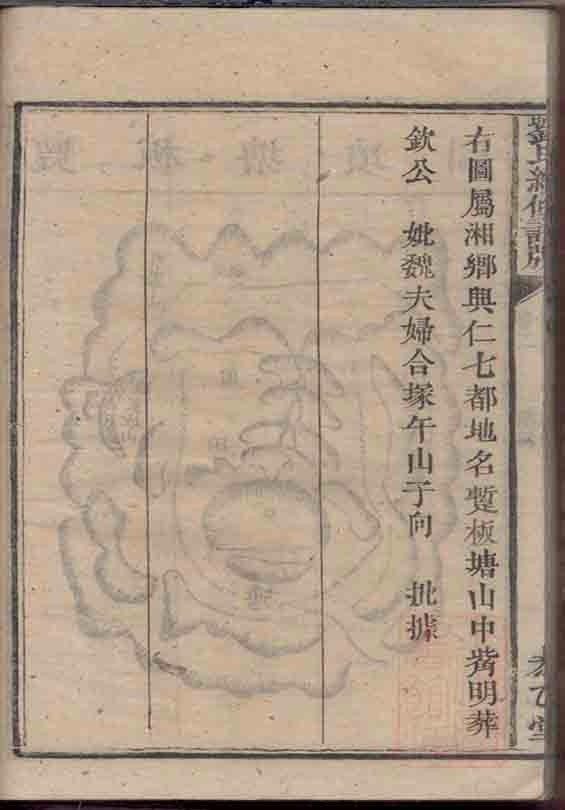 右圖屬湘鄉興仁七都地名蹔板塘山中嵴明葬
欽公 妣魏夫婦合塚午山子向 批據
劉氏續修譜